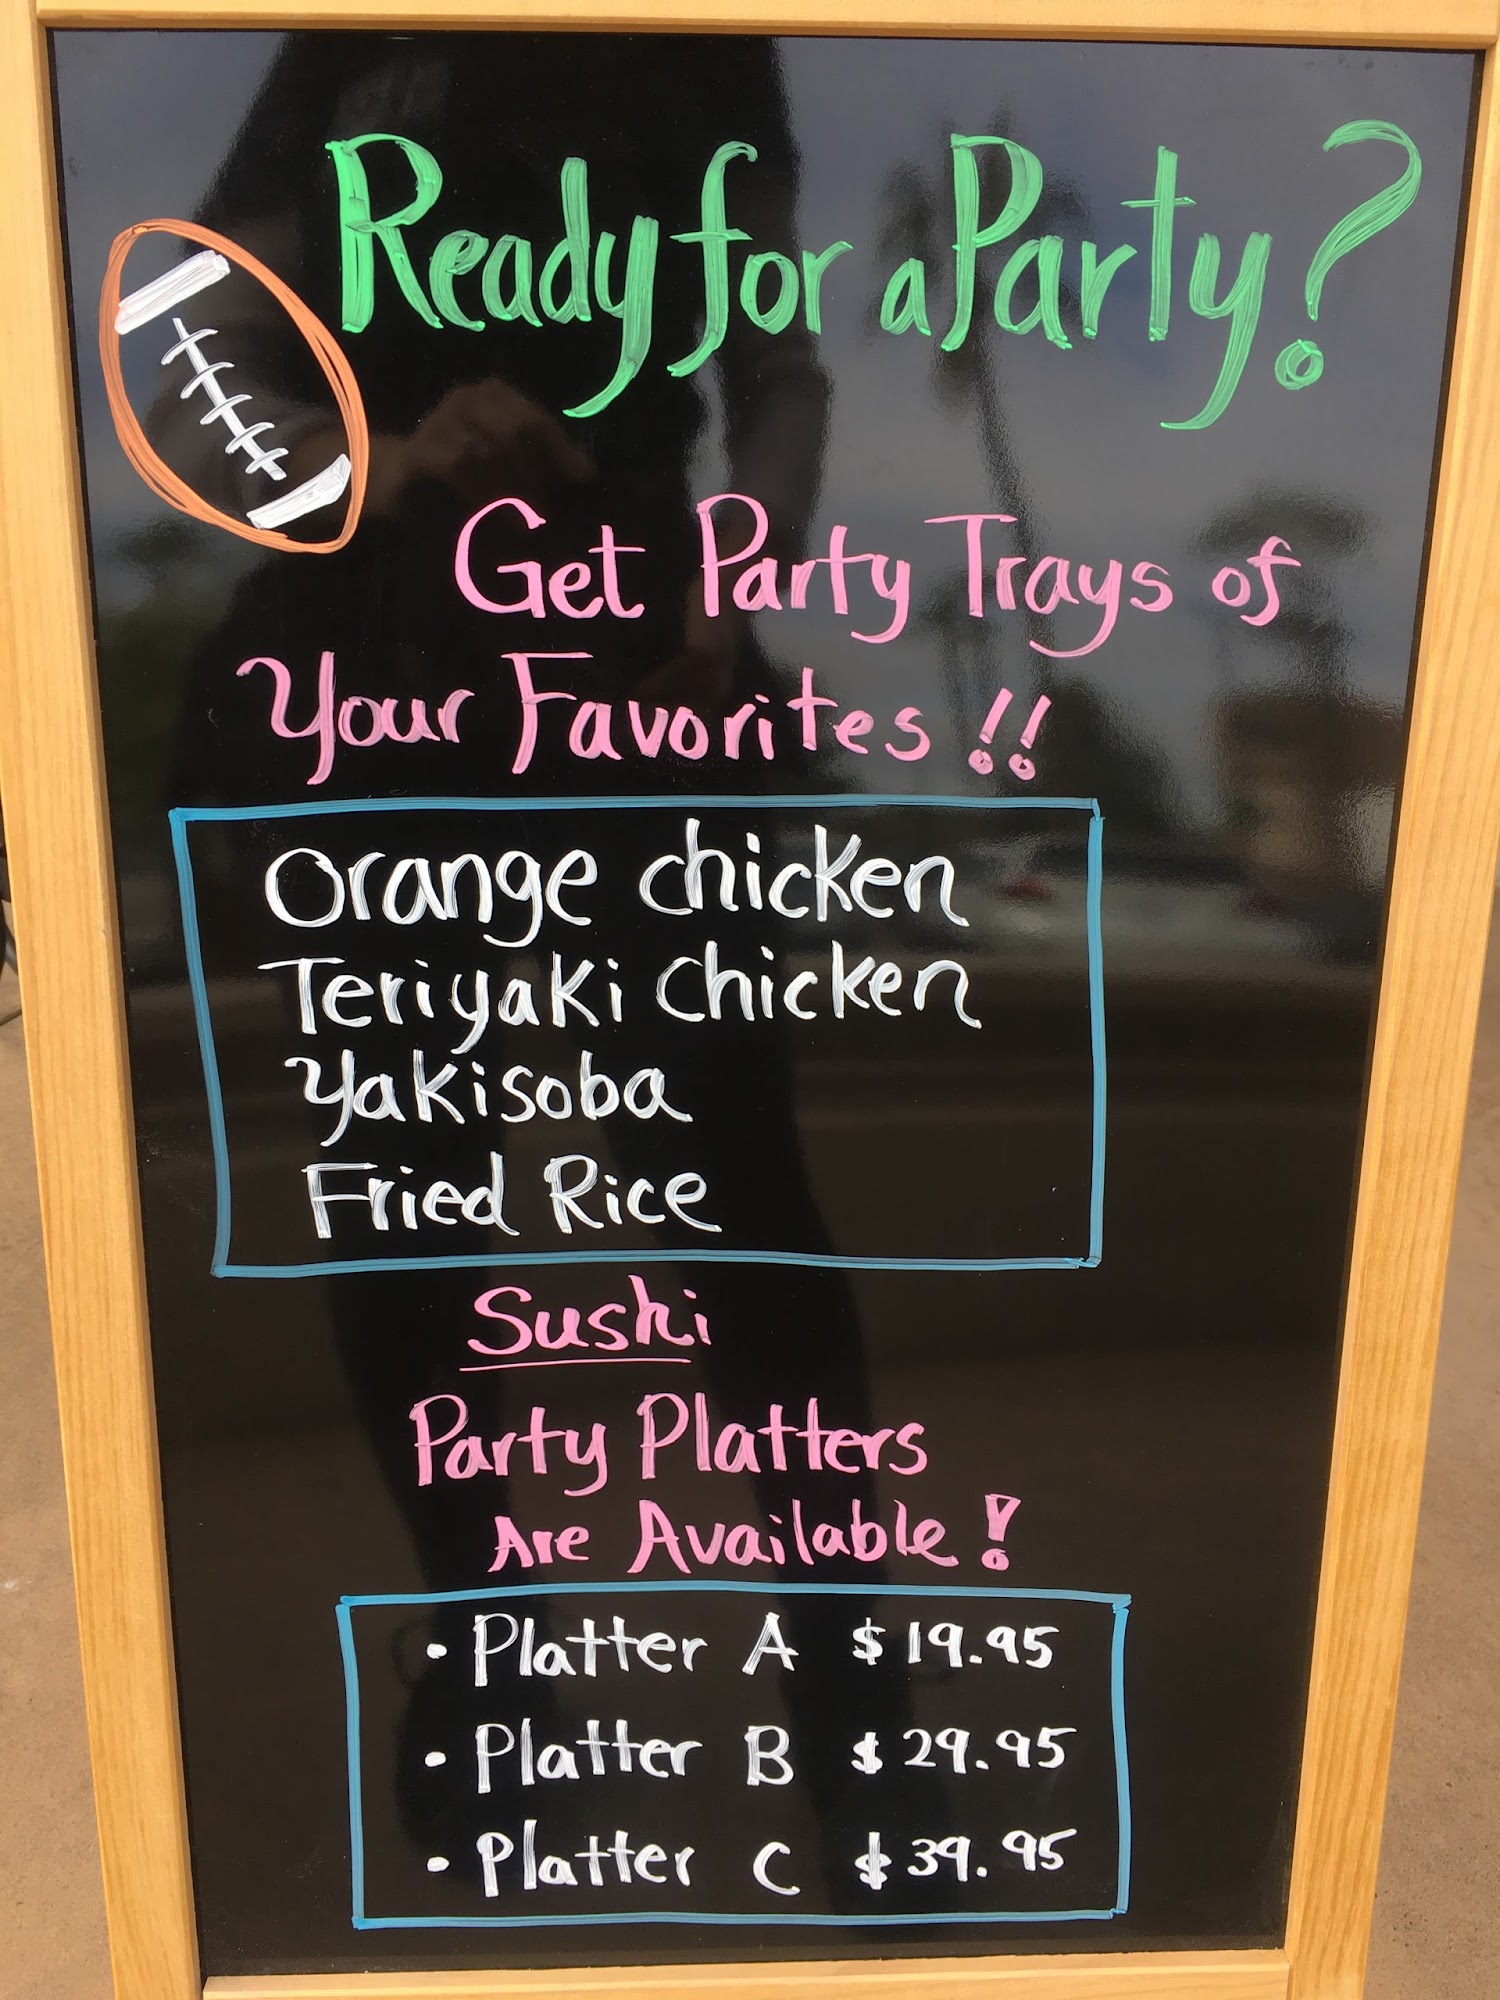 Ready for a Party?
Get Party Trays of
Your Favorites!!
Orange chicken
Teriyaki chicken
Yakisoba
Fried Rice
Sushi
Party Platters
Are Available!
• Platter A $19.95
• Platter B $29.95
• Platter C $39.95